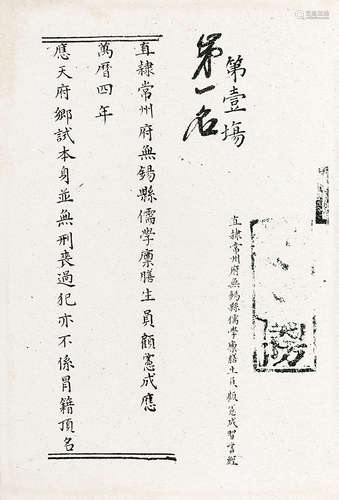 直隸常州府無錫縣儒學廪膳生員顧憲成習書經
第壹場
第一名
直隸常州府無錫縣儒學廪膳生員顧憲成應
萬曆四年
應天府鄉試本身並無刑喪過犯亦不係冐籍頂名